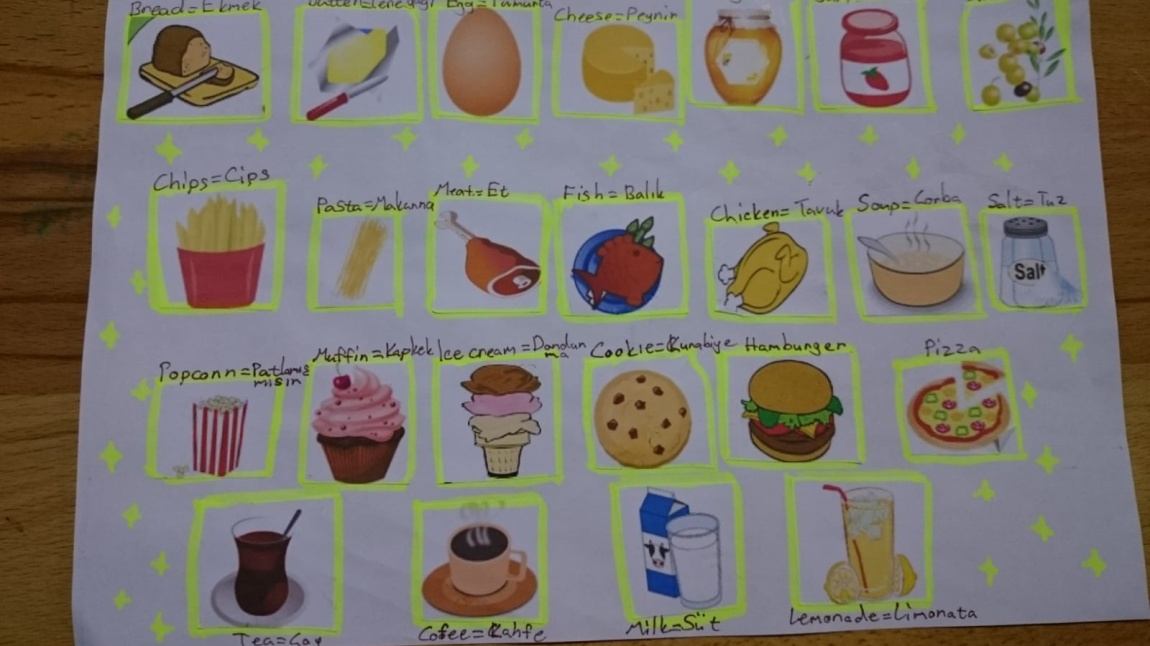 Bread=Ekmek
Egg=Yumurta
Cheese=Peynir
Chips=Cips
Pasta=Makarna
Meat=Et
Fish=Balık
Chicken=Tavuk
Soup=Corba
Salt=Tuz
Salt
Popconn=Patlamış
mısın
Muffin=Kapkek
Ice cream=Dondun
ma
Cookie=Kurabiye
Hamburger
Pizza
Tea=Çay
Cofee=Kahfe
Milk=Süt
Lemonade=Limonata